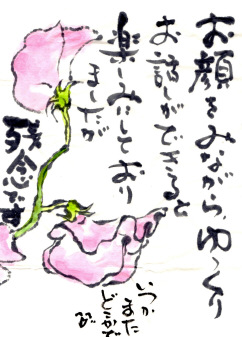 お顔をみながら、ゆっくり
お話しができると
楽しみにして おり
ましたが
残念です
いつか
また
どこかで